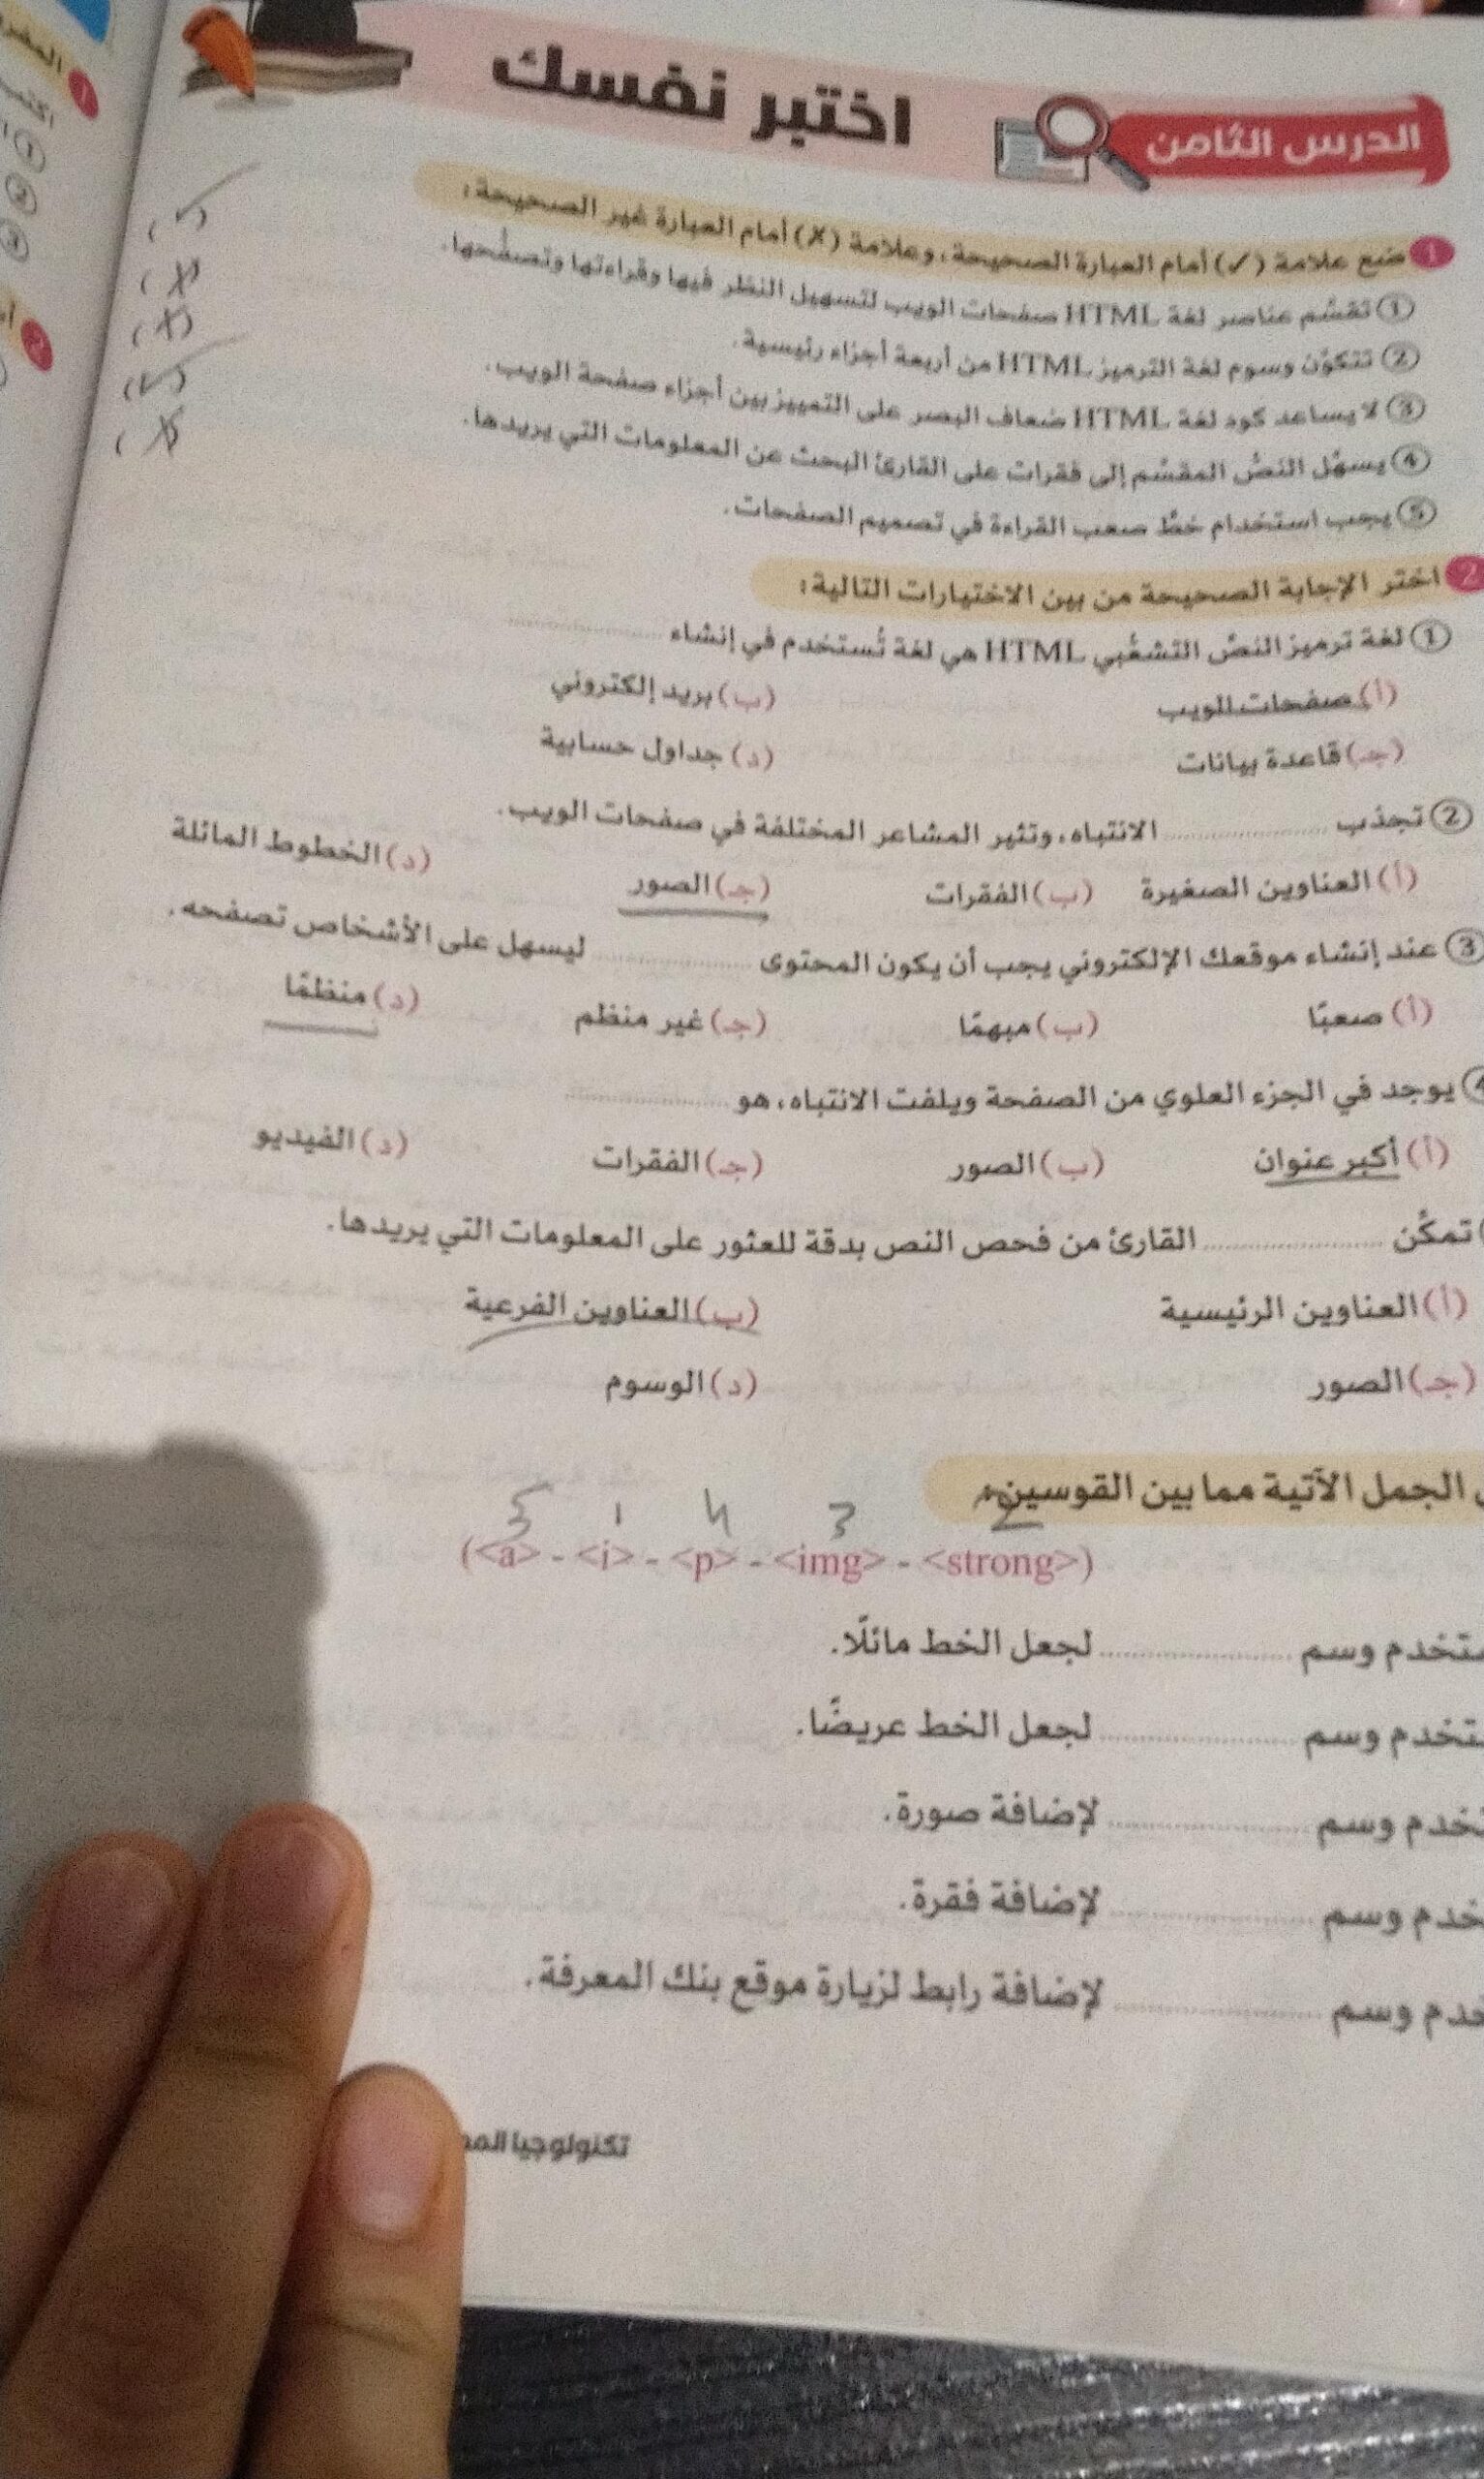 الدرس الثامن
اختبر نفسك
1 ضع علامة (✓) أمام العبارة الصحيحة، وعلامة (✗) أمام العبارة غير الصحيحة:
① تقسّم عناصر لغة HTML صفحات الويب لتسهيل النظر فيها وقراءتها وتصفّحها. (✓)
② تتكوّن وسوم لغة الترميز HTML من أربعة أجزاء رئيسية. (✗)
③ لا يساعد كود لغة HTML ضعاف البصر على التمييز بين أجزاء صفحة الويب. (✗)
④ يسهّل النصّ المقسّم إلى فقرات على القارئ البحث عن المعلومات التي يريدها. (✓)
⑤ يجب استخدام خطّ صعب القراءة في تصميم الصفحات. (✗)
2 اختر الإجابة الصحيحة من بين الاختيارات التالية:
① لغة ترميز النصّ التشعّبي HTML هي لغة تُستخدم في إنشاء ..........
(أ) صفحات الويب (ب) بريد إلكتروني
(جـ) قاعدة بيانات (د) جداول حسابية
② تجذب .......... الانتباه، وتثير المشاعر المختلفة في صفحات الويب.
(أ) العناوين الصغيرة (ب) الفقرات (جـ) الصور (د) الخطوط المائلة
③ عند إنشاء موقعك الإلكتروني يجب أن يكون المحتوى .......... ليسهل على الأشخاص تصفحه.
(أ) صعبًا (ب) مبهمًا (جـ) غير منظم (د) منظمًا
④ يوجد في الجزء العلوي من الصفحة ويلفت الانتباه، هو ..........
(أ) أكبر عنوان (ب) الصور (جـ) الفقرات (د) الفيديو
تمكّن .......... القارئ من فحص النص بدقة للعثور على المعلومات التي يريدها.
(أ) العناوين الرئيسية (ب) العناوين الفرعية
(جـ) الصور (د) الوسوم
الجمل الآتية مما بين القوسين:
5 1 4 3 2
(<a> - <i> - <p> - <img> - <strong>)
تخدم وسم .......... لجعل الخط مائلًا.
تخدم وسم .......... لجعل الخط عريضًا.
خدم وسم .......... لإضافة صورة.
خدم وسم .......... لإضافة فقرة.
دم وسم .......... لإضافة رابط لزيارة موقع بنك المعرفة.
تكنولوجيا